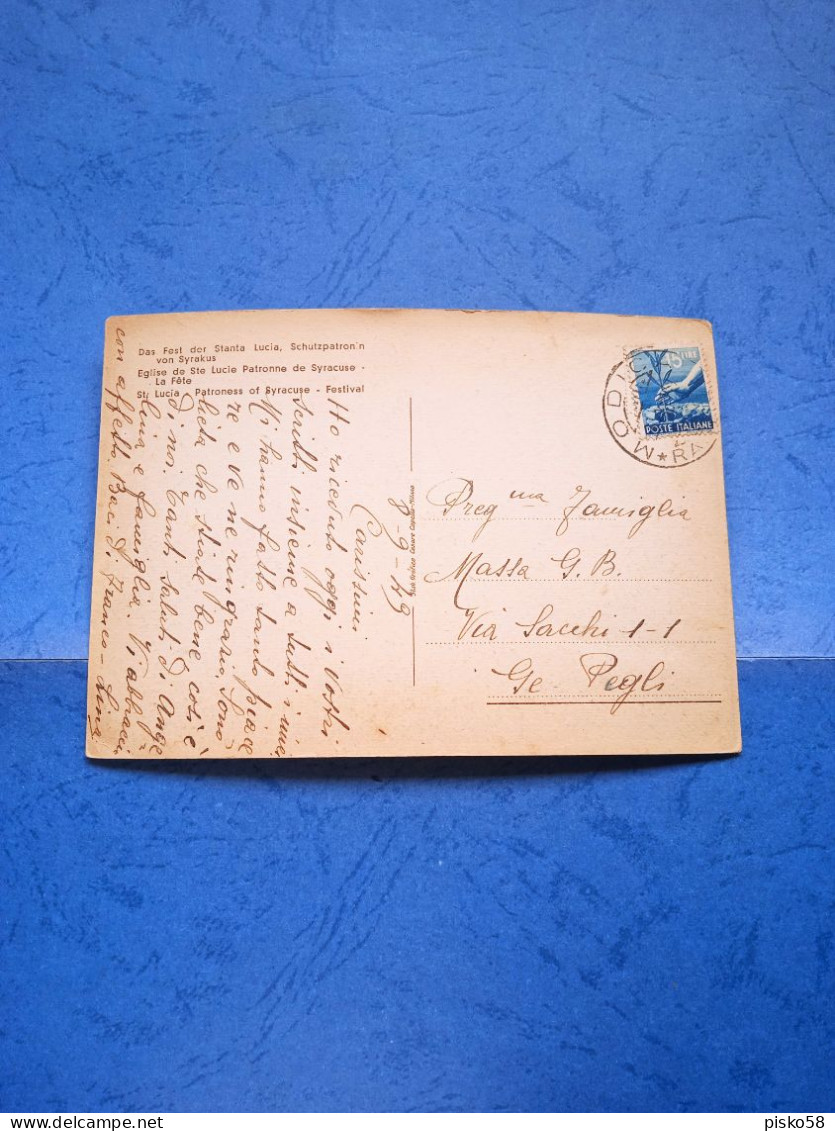 Das Fest der Stanta Lucia, Schutzpatron'n
von Syrakus
Eglise de Ste Lucie Patronne de Syracuse -
La Fête
St. Lucia Patroness of Syracuse - Festival
8-9-49
Carissimi
Ho ricevuto oggi i Vostri
scritti insieme a tutti i miei
Mi hanno fatto tanto piace
re e ve ne ringrazio, Sono
lieta che state bene così è
di noi. Tanti saluti di Ange
lina e famiglia. Vi abbracci
con affetto Baci D. Franco - Lina
15 LIRE
POSTE ITALIANE
MODICA
* RA
Preg ma Famiglia
Massa G. B.
Via Sacchi 1-1
Ge Pegli
pisko58